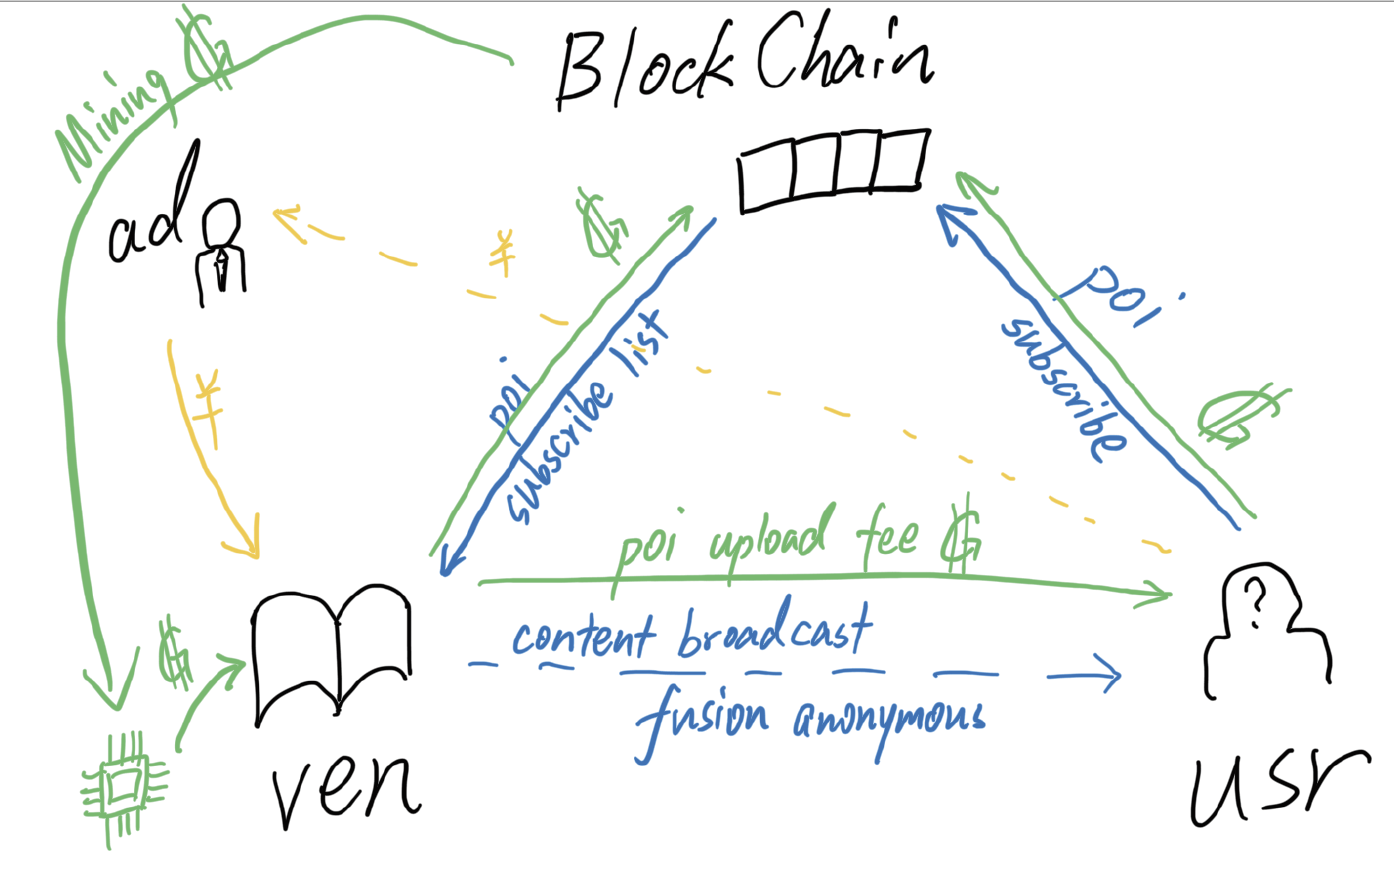 Block Chain
Mining $
ad
¥
$
poi
subscribe list
poi
subscribe
¥
$
poi upload fee $
content broadcast
fusion anonymous
?
$
ven
usr